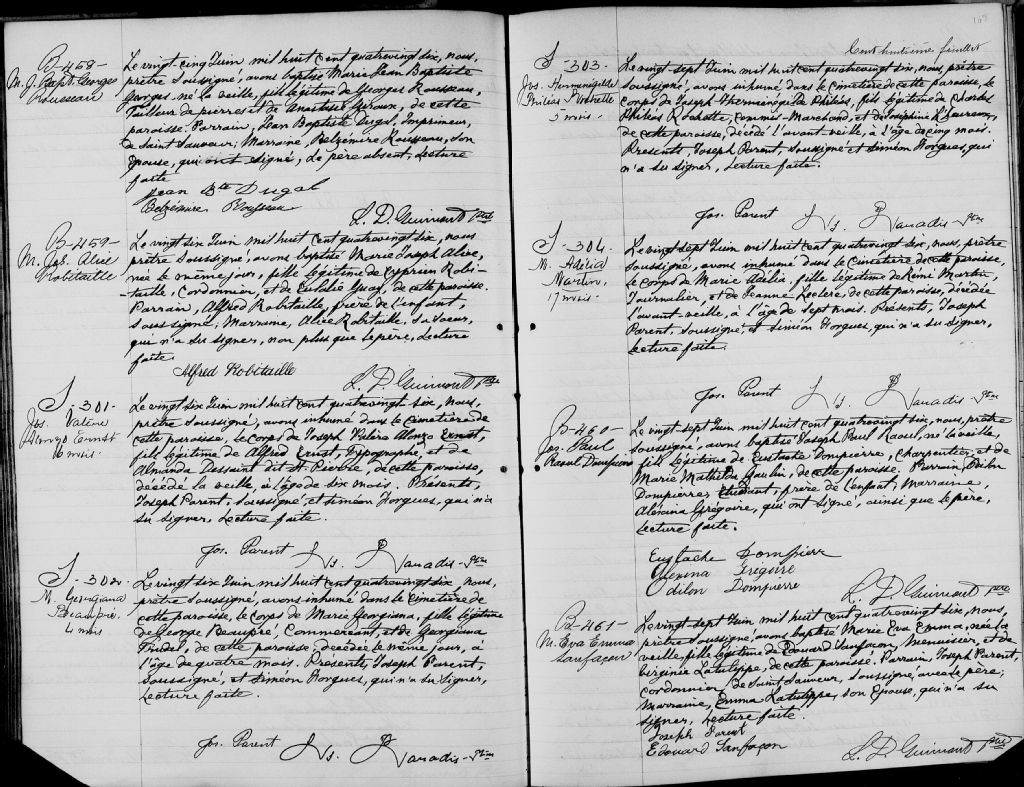 B-458-
M. J. Bapt. Georges
Rousseau
Le vingt cinq Juin mil huit cent quatrevingt six, nous,
prêtre soussigné, avons baptisé Marie Jean Baptiste
Georges, né la veille, fils légitime de Georges Rousseau,
tailleur de pierres et de Anastasie Giroux, de cette
paroisse. Parrain, Jean Baptiste Dugal, Imprimeur,
de Saint Sauveur; Marraine, Belzémire Rousseau, son
épouse, qui ont signé, le père absent, Lecture
faite
Jean Bte Dugal
Belzémire Rousseau
L. D. Guimont Ptre
B-459-
M. Jos. Alice
Robitaille
Le vingt six Juin mil huit cent quatrevingt six, nous
prêtre soussigné, avons baptisé Marie Joseph Alice,
née le même jour, fille légitime de Cyprien Robi-
-taille, Cordonnier, et de Eulalie Guay, de cette paroisse.
Parrain, Alfred Robitaille, frère de l'enfant,
soussigné; Marraine, Alice Robitaille, sa soeur,
qui n'a su signer, non plus que le père, Lecture
faite
Alfred Robitaille
L. D. Guimont Ptre
S-301-
Jos. Valère
Alonzo Ernst
6 mois.
Le vingt six Juin mil huit cent quatrevingt-six, nous,
prêtre soussigné, avons inhumé dans le cimetière de
cette paroisse, le corps de Joseph Valère Alonzo Ernst,
fils légitime de Alfred Ernst, Typographe, et de
Almanda Dessaint dit St. Pierre, de cette paroisse,
décédé la veille, à l'âge de six mois. Présents,
Joseph Parent, soussigné, et Siméon Horgues, qui n'a
su signer, Lecture faite.
Jos. Parent Ns. P Nanadis-Ptre
S-302-
M. Georgiana
Beaupré.
4 mois
Le vingt six Juin mil huit cent quatrevingt six nous,
prêtre soussigné, avons inhumé dans le cimetière de
cette paroisse, le corps de Marie Georgiana, fille légitime
de George Beaupré, Commerçant, et de Georgiana
Trudel, de cette paroisse, décédée le même jour, à
l'âge de quatre mois. Présents, Joseph Parent,
soussigné, et Siméon Horgues, qui n'a su signer,
Lecture faite.
Jos. Parent Ns. P Nanadis-Ptre
108
Cent huitième feuillet
S-303-
Jos. Herménégilde
Philias Rochette
5 mois-
Le vingt-sept Juin mil huit cent quatrevingt six, nous, prêtre
soussigné, avons inhumé dans le cimetière de cette paroisse, le
corps de Joseph Herménégilde Philias, fils légitime de Charles
Philias Rochette, Commis-Marchand, et de Joséphine L'Heureux,
de cette paroisse, décédé l'avant veille, à l'âge de cinq mois.
Présents, Joseph Parent, soussigné et Siméon Horgues, qui
n'a su signer, Lecture faite.
Jos. Parent Ns. P Nanadis-Ptre
S-304-
M. Adélia
Martin,
17 mois-
Le vingt sept Juin mil huit cent quatrevingt six, nous, prêtre
soussigné, avons inhumé dans le cimetière de cette paroisse,
le corps de Marie Adélia, fille légitime de Rémi Martin,
Journalier, et de Jeanne Leclerc, de cette paroisse, décédée
l'avant veille, à l'âge de sept mois. Présents, Joseph
Parent, soussigné, et Siméon Horgues, qui n'a su signer,
Lecture faite.
Jos. Parent Ns. P Nanadis-Ptre
B-460-
Jos. Paul
Raoul Dompierre
Le vingt sept Juin mil huit cent quatrevingt six, nous, prêtre
soussigné, avons baptisé Joseph Paul Raoul, né la veille,
fils légitime de Eustache Dompierre, Charpentier, et de
Marie Mathilda Goulin, de cette paroisse. Parrain, Odilon
Dompierre, Etudiant, frère de l'enfant; Marraine,
Aléxina Grégoire, qui ont signé, ainsi que le père,
Lecture faite.
Eustache Dompierr
Alexina Gregoire
Odilon Dompierre
L. D. Guimont Ptre
B-461-
M. Eva Emma
Sanfaçon
Le vingt-sept Juin mil huit cent quatrevingt six, nous,
prêtre soussigné, avons baptisé Marie Eva Emma, née la
veille, fille légitime de Edouard Sanfaçon, Menuisier, et de
Virginie Latulippe, de cette paroisse. Parrain, Joseph Parent,
cordonnier, de Saint Sauveur, soussigné, avec le père;
Marraine, Emma Latulippe, son épouse, qui n'a su
signer, Lecture faite.
Joseph Parent
Edouard Sanfaçon
L. D. Guimont Ptre